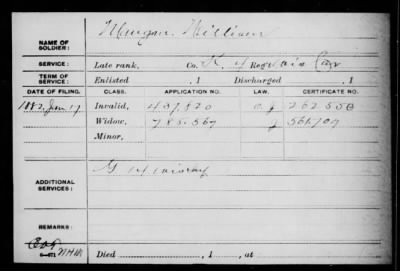 NAME OF SOLDIER: Mangan, William
SERVICE: Late rank, Co. K, 4 Reg't Wis Cav
TERM OF SERVICE: Enlisted , 1 Discharged , 1
DATE OF FILING. CLASS. APPLICATION NO. LAW. CERTIFICATE NO.
1882, Jan 17 Invalid, 437,820 262550
Widow, 785,567 561,707
Minor,
ADDITIONAL SERVICES: G 4
REMARKS:
Died , 1 , at